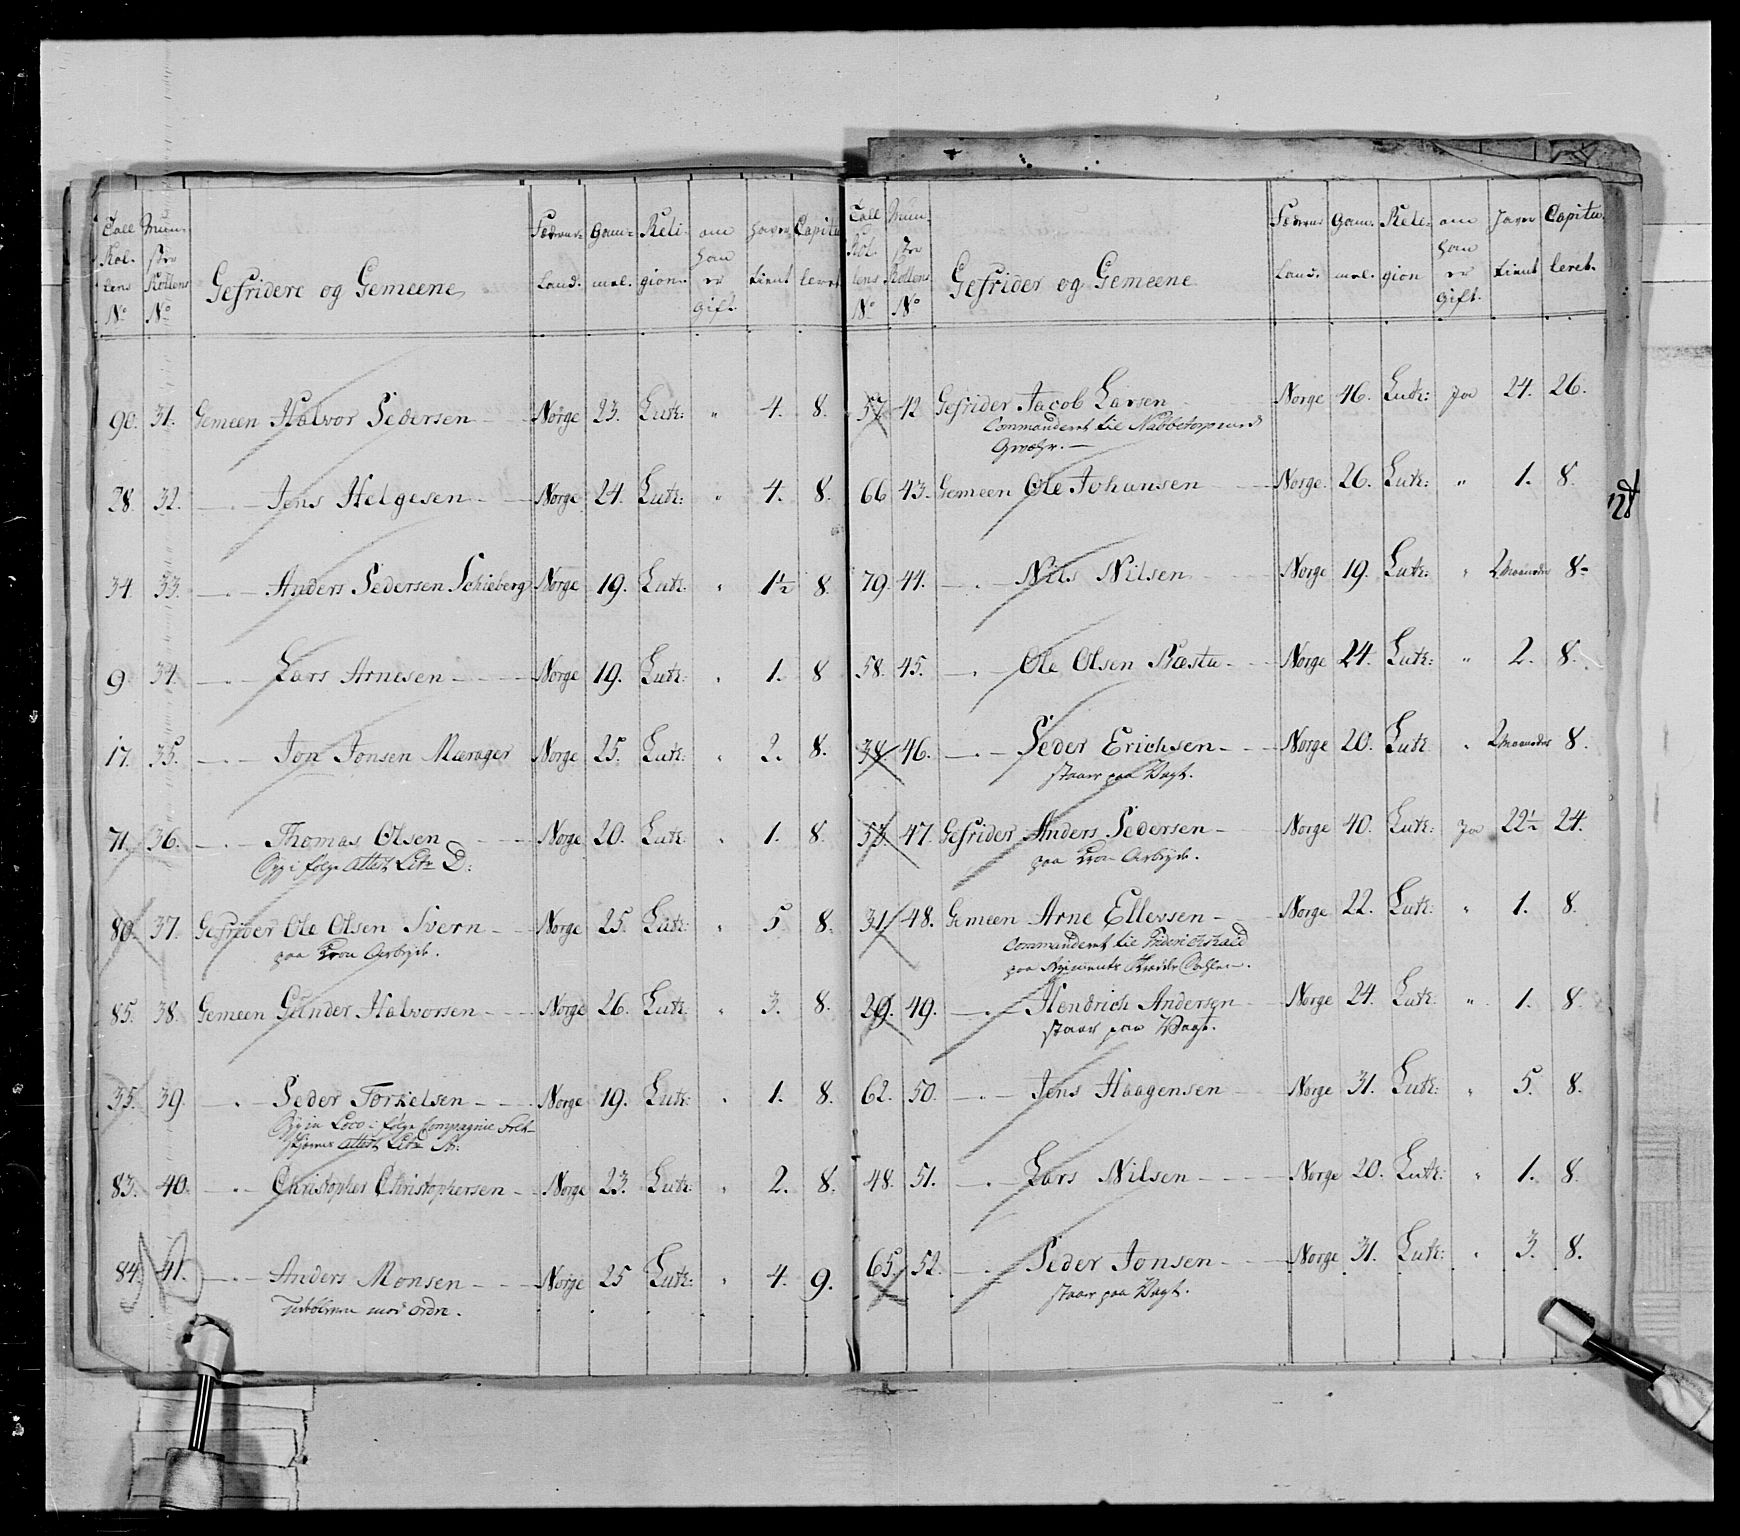 Tall Rollens No | Mun-ster Rollens No | Gefridere og Gemeene | Fæderne-Land. | Gam-mel. | Reli-gion. | om han er gift. | haver tient | Capitu-leret
90. 31. Gemeen Halvor Pedersen - Norge 23. Luth: " 4. 8.
28. 32. - " - Jens Helgesen - Norge 24. Luth: " 4. 8.
34. 33. - " - Anders Pedersen Schieberg Norge 19. Luth: " 1½ 8.
9. 34. - " - Lars Arnesen - Norge 19. Luth: " 1. 8
17. 35. - " - Jon Jonsen Mærager Norge 25. Luth: " 2. 8.
71. 36. - " - Thomas Olsen - Norge 20. Luth: " 1. 8.
Syg i følge Attest Litr D:
80. 37. Gefrider Ole Olsen Svern - Norge 25. Luth: " 5 8.
paa Kron Arbejde.
85. 38. Gemeen Gunder Halvorsen - Norge 26. Luth: " 3. 8.
35. 39. - " - Peder Torkelsen - Norge 19. Luth: " 1. 8.
Syg in Loco i følge Compagnie Felt-
skjærer Attest Litr A:
83. 40. - " - Christopher Christophersen - Norge 23. Luth: " 2. 8.
84. 41. - " - Anders Monsen - Norge 25 Luth: " 4. 9.
mod ordre.
Tall Rollens No | Mun-ster Rollens No | Gefrider og Gemeene | Fæderne Land. | Gam-mel. | Reli-gion | om han er gift. | haver tient | Capitu-leret.
57. 42 Gefrider Jacob Larsen Norge 46. Luth: Ja 24. 26.
Commanderet til
66 43. Gemeen Ole Johansen - Norge 26. Luth: " 1. 8.
79. 44. - " - Nils Nilsen - Norge 19. Luth: " 2 Maaneder 8 -
58. 45. - " - Ole Olsen Næstu - Norge 24. Luth: " 2. 8.
38. 46. - " - Peder Erichsen - Norge 20. Luth " 2 Maaneder 8.
staar paa Vagt.
53. 47. Gefrider Anders Pedersen - Norge 40. Luth: Ja 22½ 24.
paa Kron Arbejde.
31. 48. Gemeen Arne Ellevsen - Norge 22. Luth: " 1. 8.
Commanderet til Friderichshald
paa Regiments
29. 49. - " - Hendrich Andersen - Norge 24. Luth: " 1. 8.
staar paa Vagt.
62. 50. - " - Jens Haagensen - Norge 31. Luth: " 5. 8.
48. 51. - " - Lars Nilsen - Norge 20. Luth: " 1. 8.
65. 52. - " - Peder Jonsen - Norge 31. Luth: " 3. 8.
staar paa Vagt.